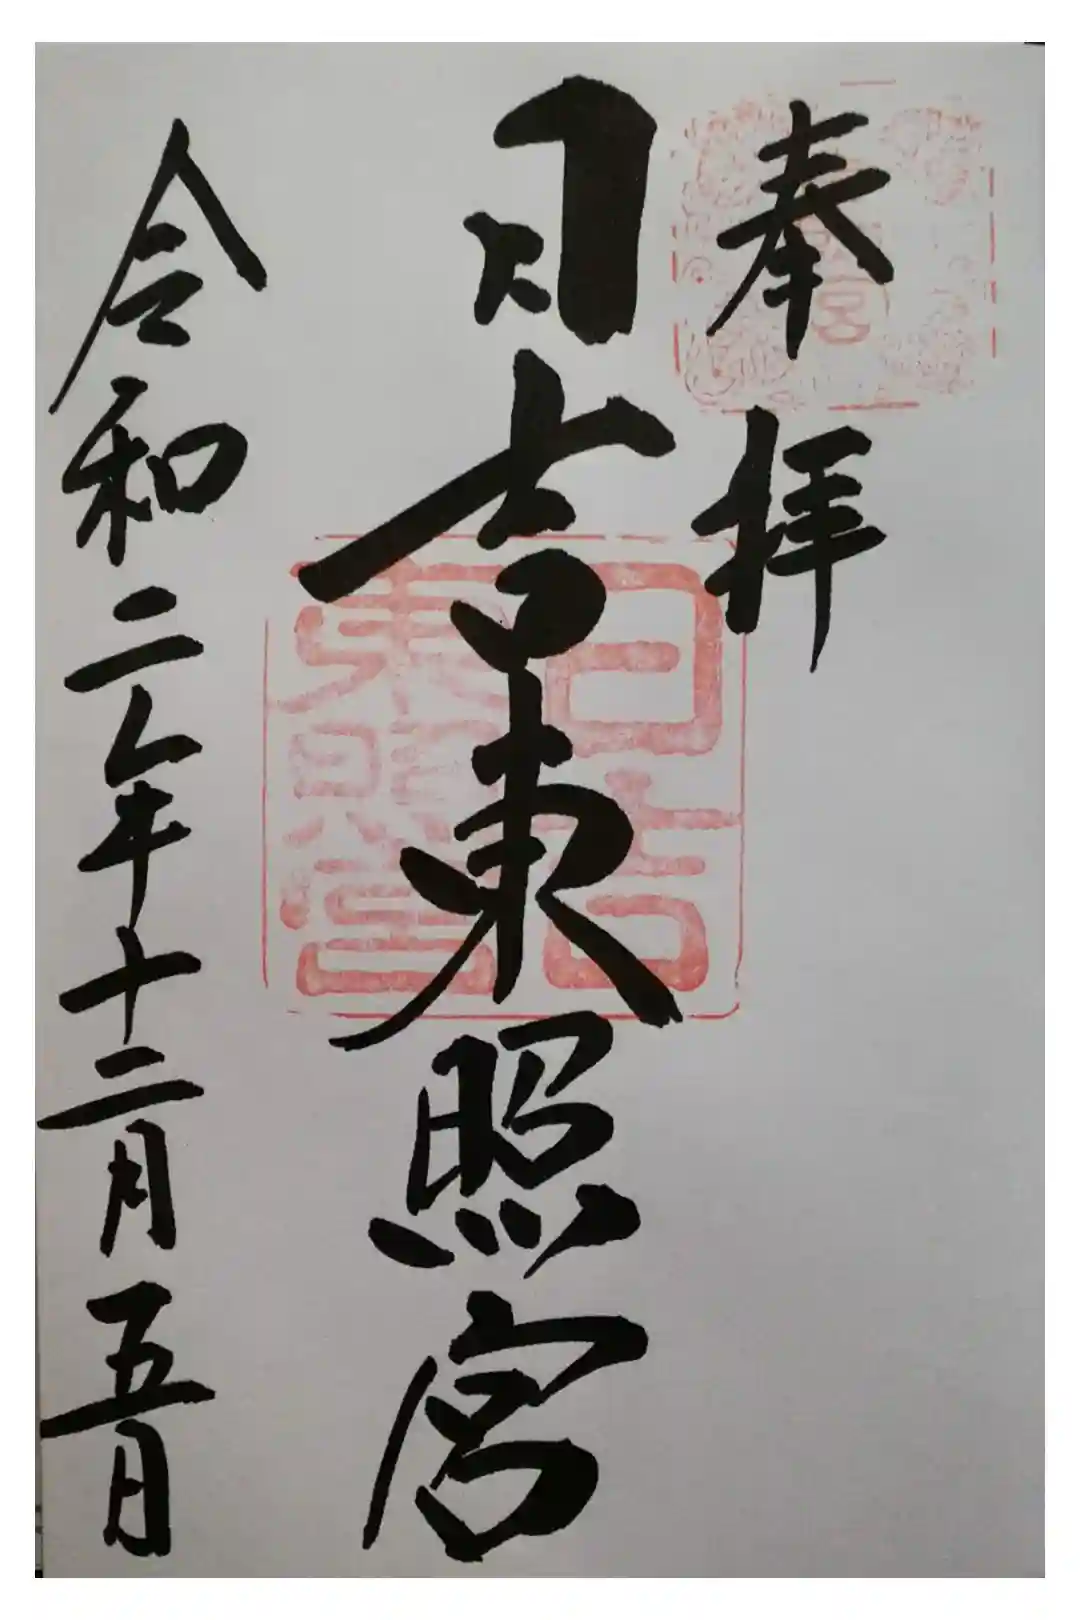 奉拝
日吉東照宮
日吉
東照宮
令和二年十二月五日